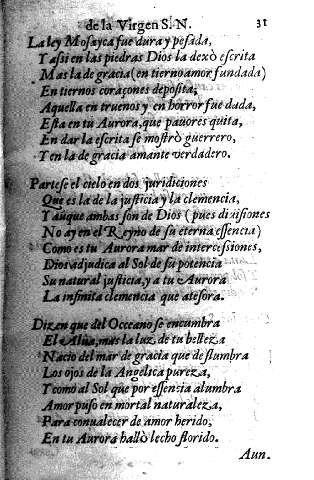 de la Virgen S. N. 31
La ley Mosayca fue dura y pesada,
Y assi en las piedras Dios la dexò escrita
Mas la de gracia (en tierno amor fundada)
En tiernos coraçones deposita;
Aquella en truenos y en horror fue dada,
Esta en tu Aurora, que pauores quita,
En dar la escrita se mostrò guerrero,
Y en la de gracia amante verdadero.
Partese el cielo en dos juridiciones
Que es la de la justicia y la clemencia,
Y aũque ambas son de Dios (pues diuisiones
No ay en el Reyno de su eterna essencia)
Como es tu Aurora mar de intercessiones,
Dios adjudica al Sol de su potencia
Su natural justicia, y a tu Aurora
La infinita clemencia que atesora.
Dizen que del Occeano se encumbra
El Alua, mas la luz de tu belleza
Nacio del mar de gracia que deslumbra
Los ojos de la Angelica pureza,
Y como al Sol que por essenzia alumbra
Amor puso en mortal naturaleza,
Para conualecer de amor herido,
En tu Aurora hallò lecho florido.
Aun.